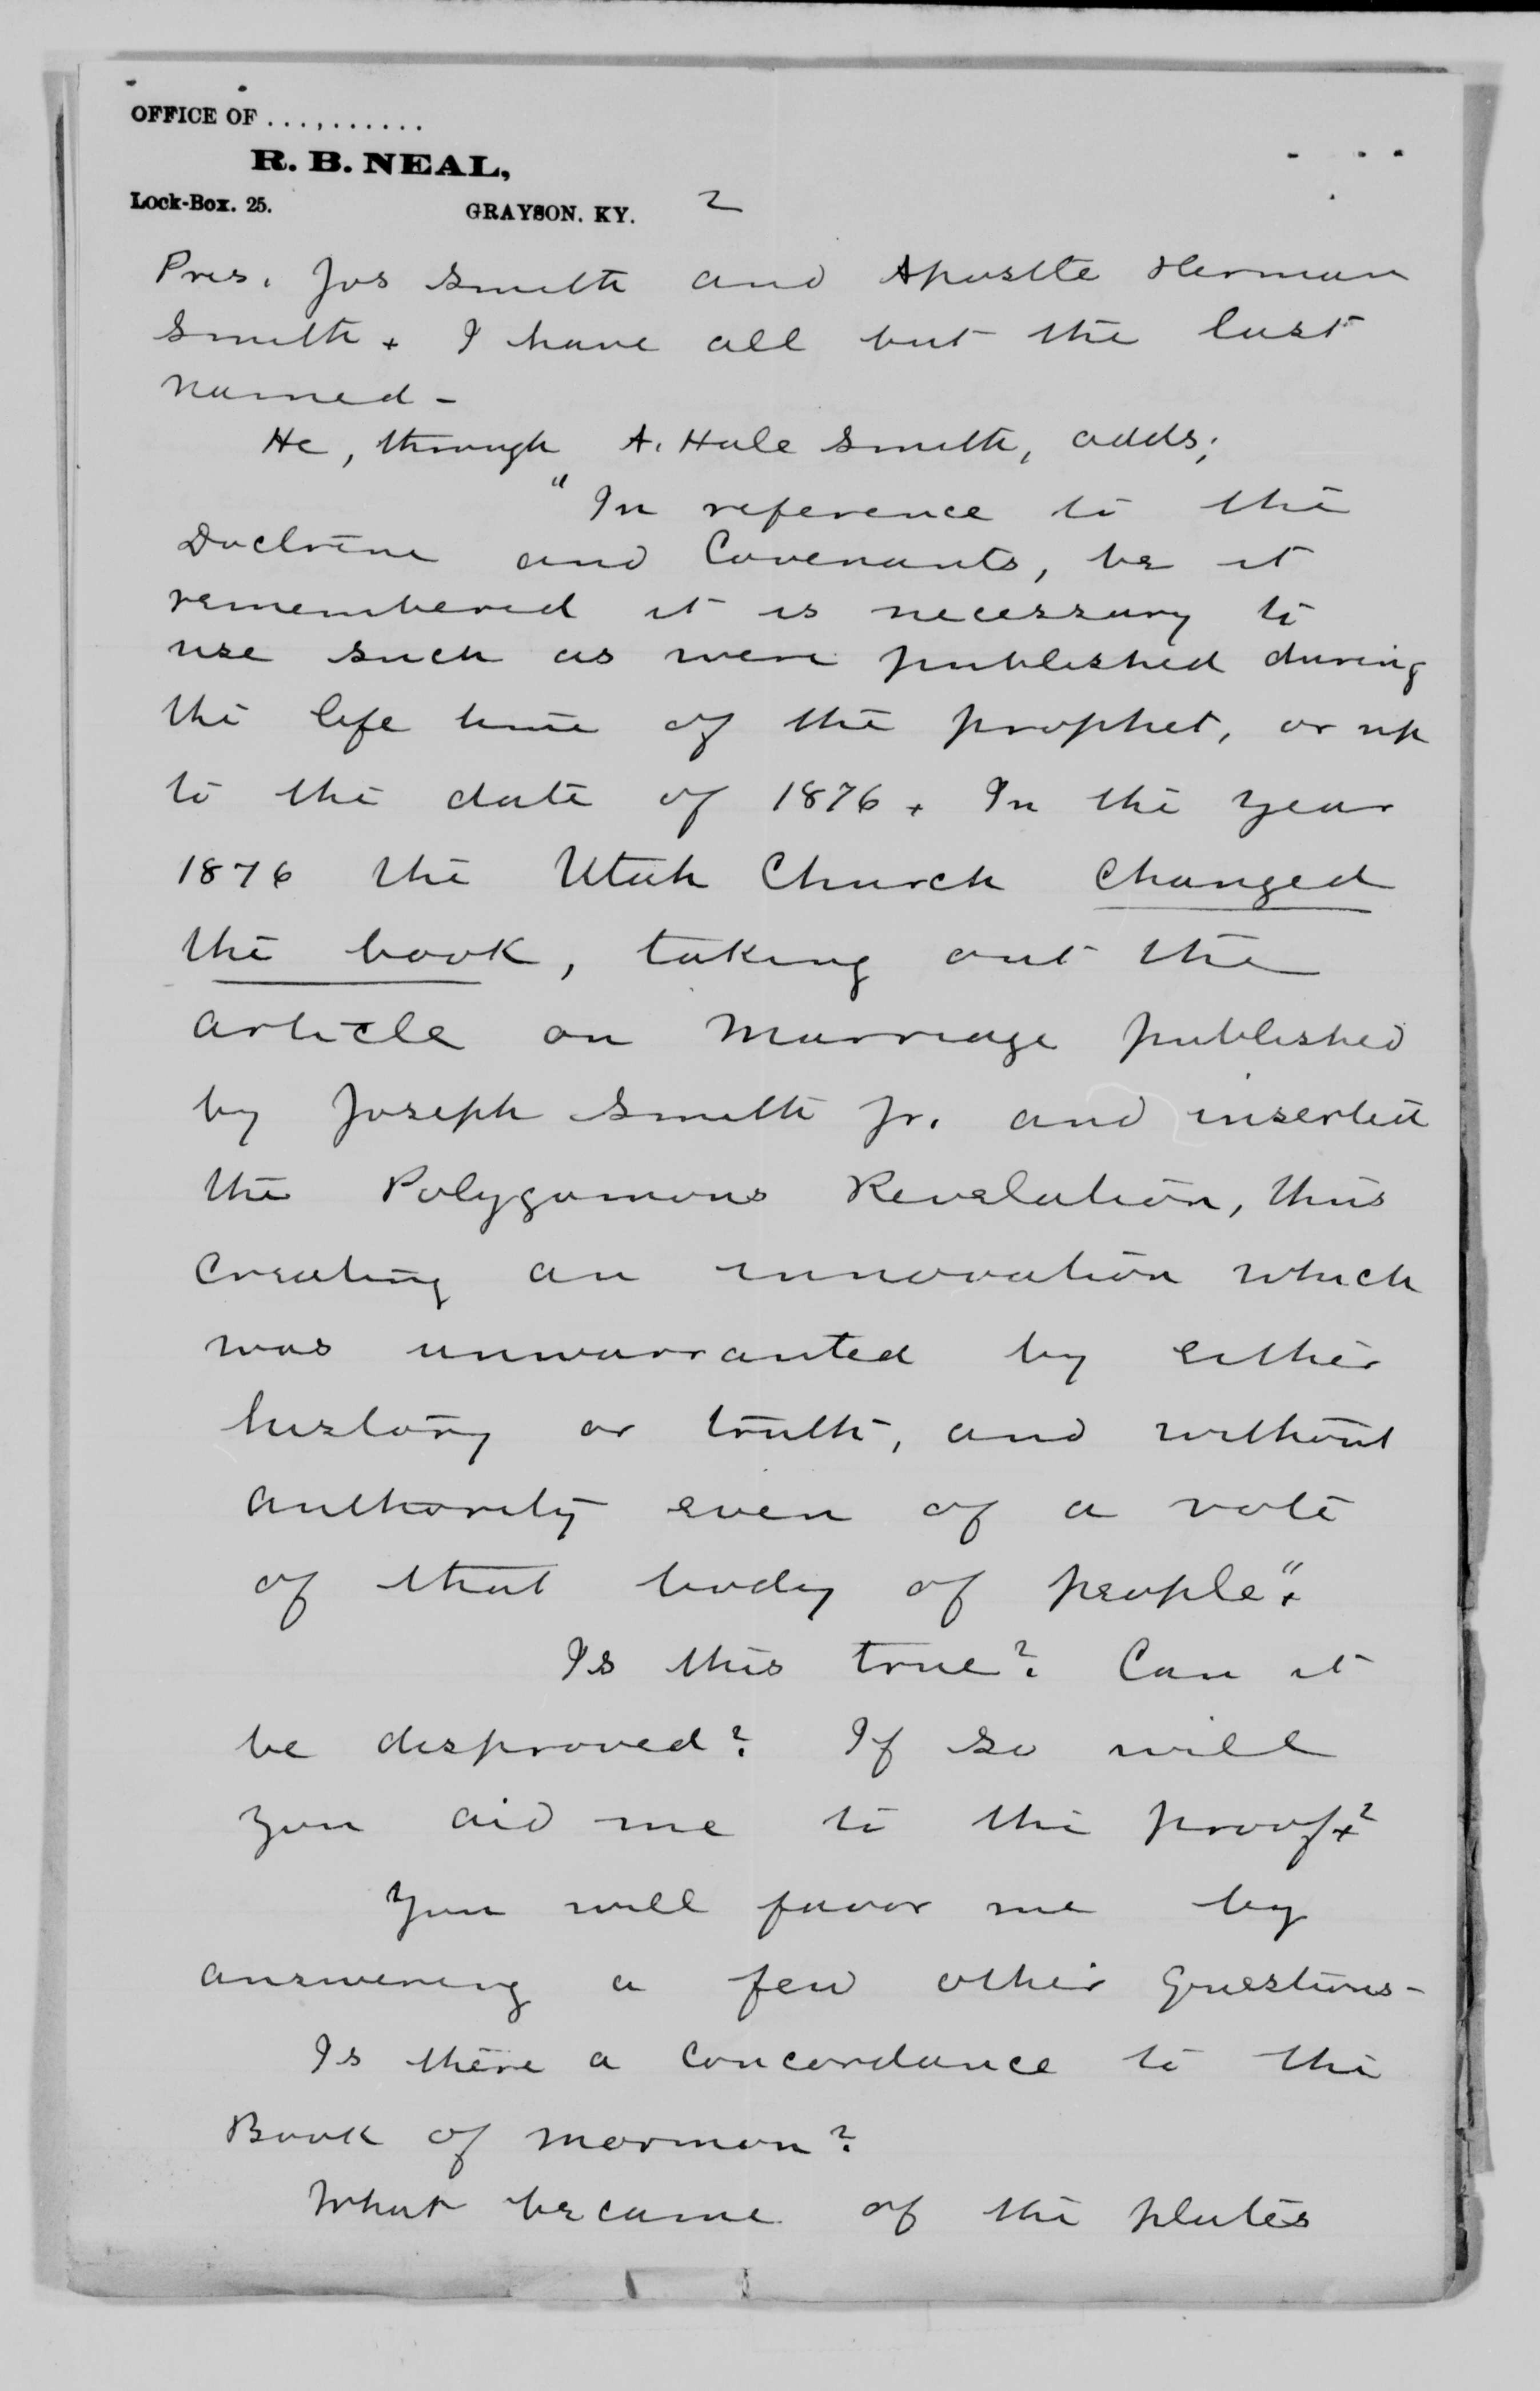 OFFICE OF ...........
R. B. NEAL,
Lock-Box. 25. GRAYSON. KY. 2
Pres. Jos Smith and Apostle Heman
Smith. I have all but the last
named -
He, through A. Hale Smith, adds;
"In reference to the
Doctrine and Covenants, be it
remembered it is necessary to
use such as were published during
the life time of the prophet, or up
to the date of 1876. In the year
1876 the Utah Church changed
the book, taking out the
article on Marriage published
by Joseph Smith Jr. and inserted
the Polygamous Revelation, thus
creating an innovation which
was unwarranted by either
history or truth, and without
authority even of a vote
of that body of people".
Is this true? Can it
be disproved? If so will
you aid me to the proof?
You will favor me by
answering a few other questions -
Is there a concordance to the
Book of Mormon?
What became of the plates